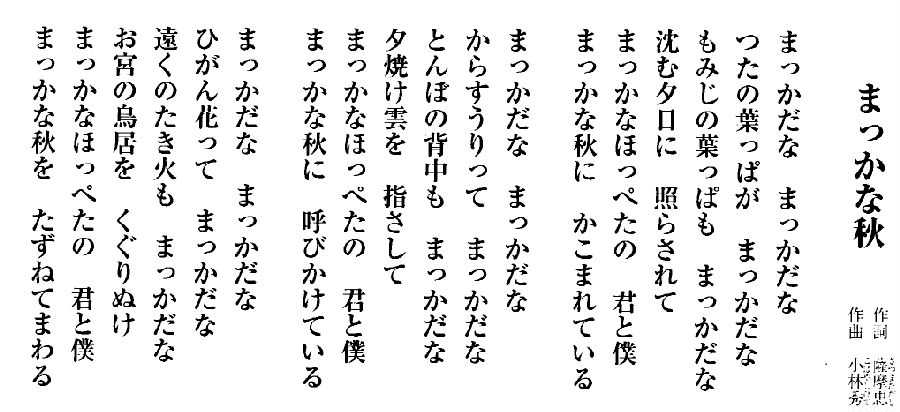 まっかな秋
作詞 薩摩忠
作曲 小林秀
まっかだな まっかだな
つたの葉っぱが まっかだな
もみじの葉っぱも まっかだな
沈む夕日に 照らされて
まっかなほっぺたの 君と僕
まっかな秋に かこまれている
まっかだな まっかだな
からすうりって まっかだな
とんぼの背中も まっかだな
夕焼け雲を 指さして
まっかなほっぺたの 君と僕
まっかな秋に 呼びかけている
まっかだな まっかだな
ひがん花って まっかだな
遠くのたき火も まっかだな
お宮の鳥居を くぐりぬけ
まっかなほっぺたの 君と僕
まっかな秋を たずねてまわる